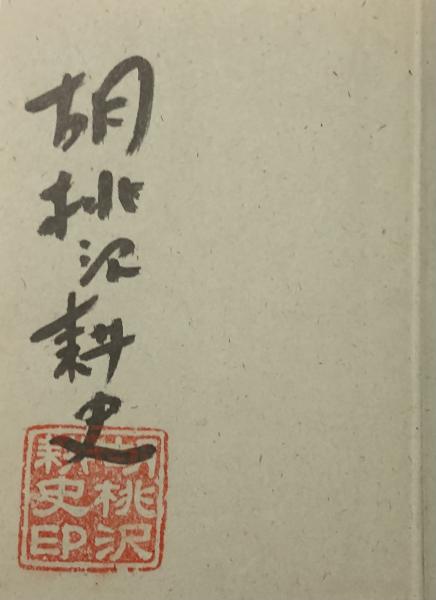 胡桃沢耕史
胡桃沢
耕史印